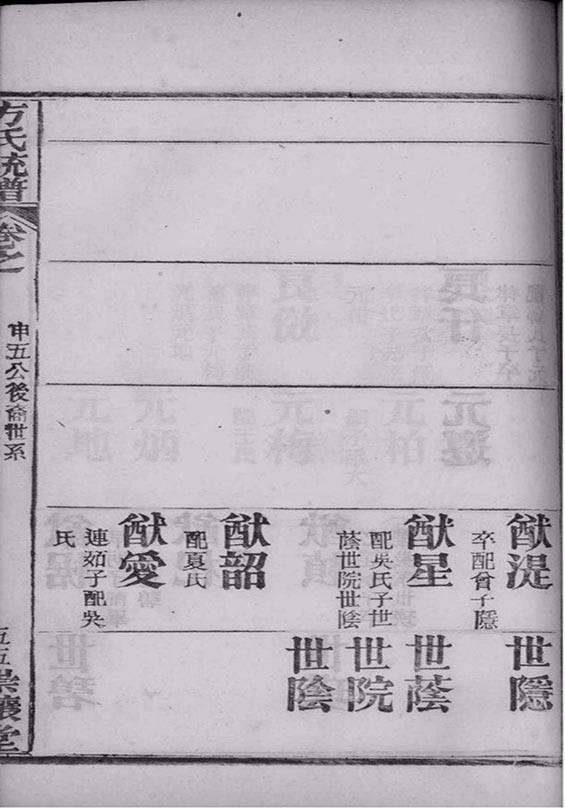 猷湜
卒配曾子隱
猷星
配吳氏子世
蔭世院世陰
猷韶
配夏氏
猷愛
連𡛟子配吳
氏
世隱
世蔭
世院
世陰
方氏統譜
卷之一
申五公後裔世系
五五